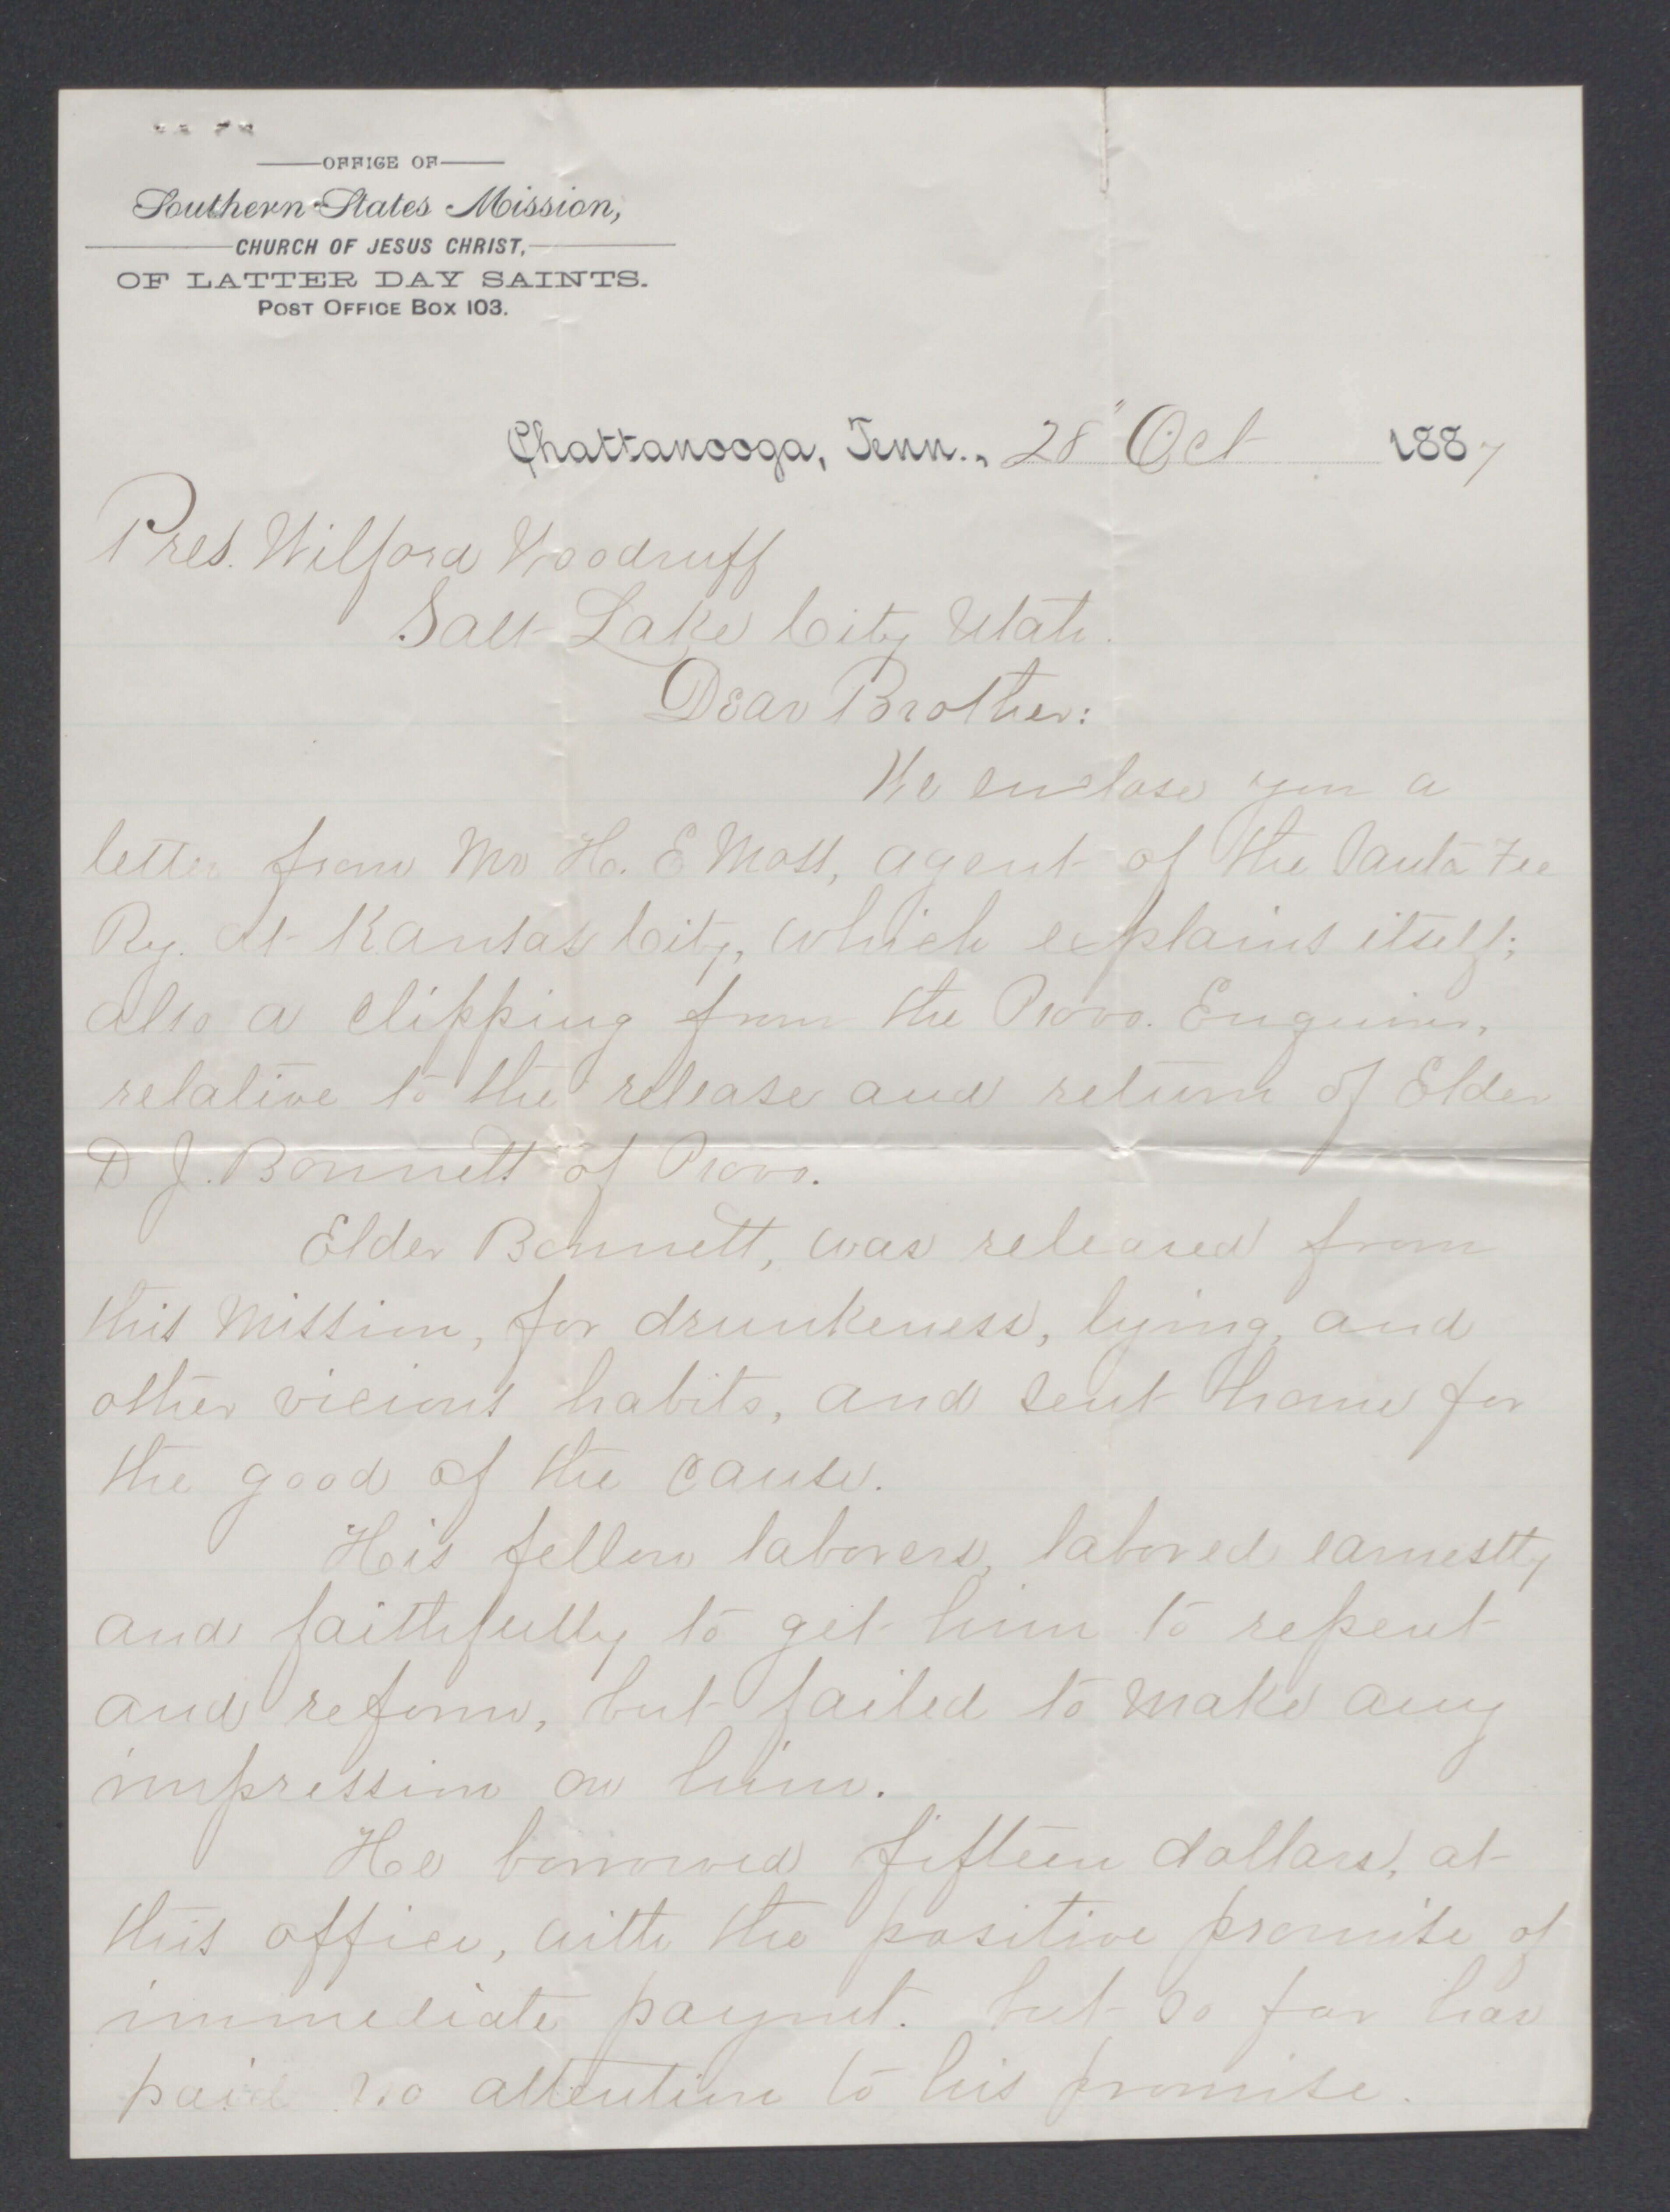 OFFICE OF
Southern States Mission,
CHURCH OF JESUS CHRIST,
OF LATTER DAY SAINTS.
POST OFFICE BOX 103.
Chattanooga, Tenn., 28" Oct 1887
Pres. Wilford Woodruff
Salt Lake City Utah.
Dear Brother:
We enclose you a
letter from Mr H. E Moss, agent of the Santa Fee
Ry. at Kansas City, which explains itself;
also a clipping from the Provo. Enquirer,
relative to the release and return of Elder
D J. Bonnett of Provo.
Elder Bonnett, was released from
this Mission, for drunkeness, lying, and
other vicious habits, and sent home for
the good of the cause.
His fellow laborers, labored earnestly
and faithfully to get him to repent
and reform, but failed to make any
impression on him.
He borrowed fifteen dollars, at
this office, with the positive promise of
immediate paymt. but so far has
paid no attention to his promise.